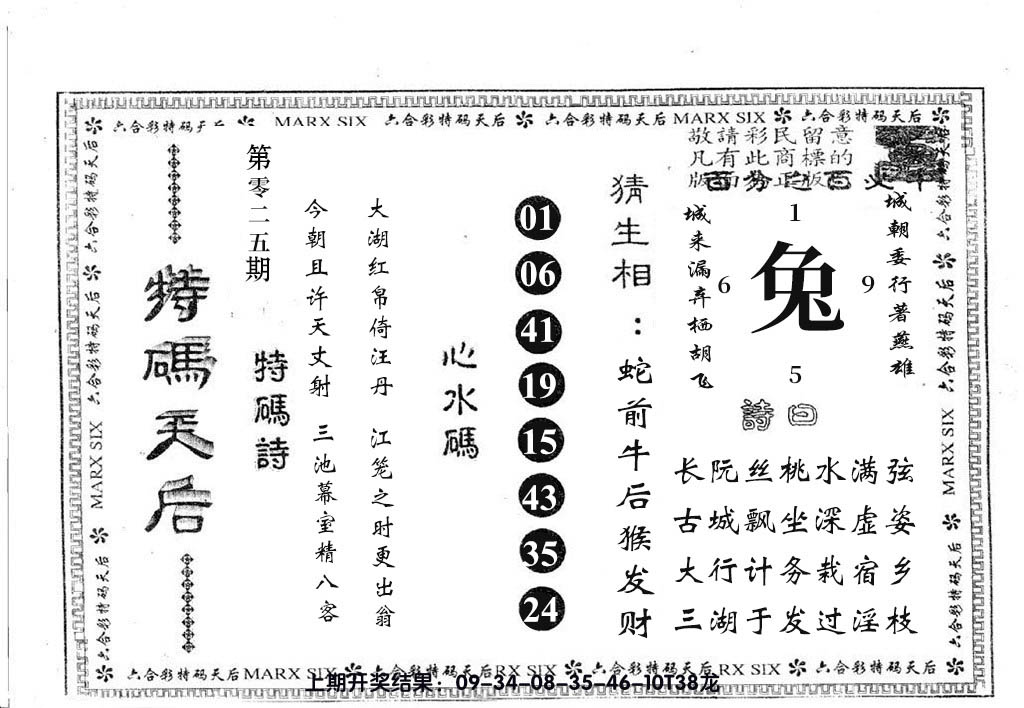 六合彩特码天后 MARX SIX 六合彩特码天后 六合彩特码天后 MARX SIX 六合彩特码天后
敬請彩民留意
凡有此商標的
版
正版
第零二五期
特碼天后
特碼詩
大湖红帛倚汪丹 江笼之时更出翁
今朝且许天丈射 三池幕室精八客
心水碼
01
06
41
19
15
43
35
24
猜生相：蛇前牛后猴发财
城朝委行著燕雄
城来漏弃栖胡飞
1
6
兔
9
5
詩曰
长阮丝桃水满弦
古城飘坐深虚姿
大行计务栽宿乡
三湖于发过淫枝
六合彩特码天后
MARX SIX
六合彩特码天后
六合彩特码天后
MARX SIX
六合彩特码天后
六合彩特码天后 MARX SIX 六合彩特码天后 RX SIX 六合彩特码天后 RX SIX 六合彩特码天后
上期开奖结果：09-34-08-35-46-10T38龙